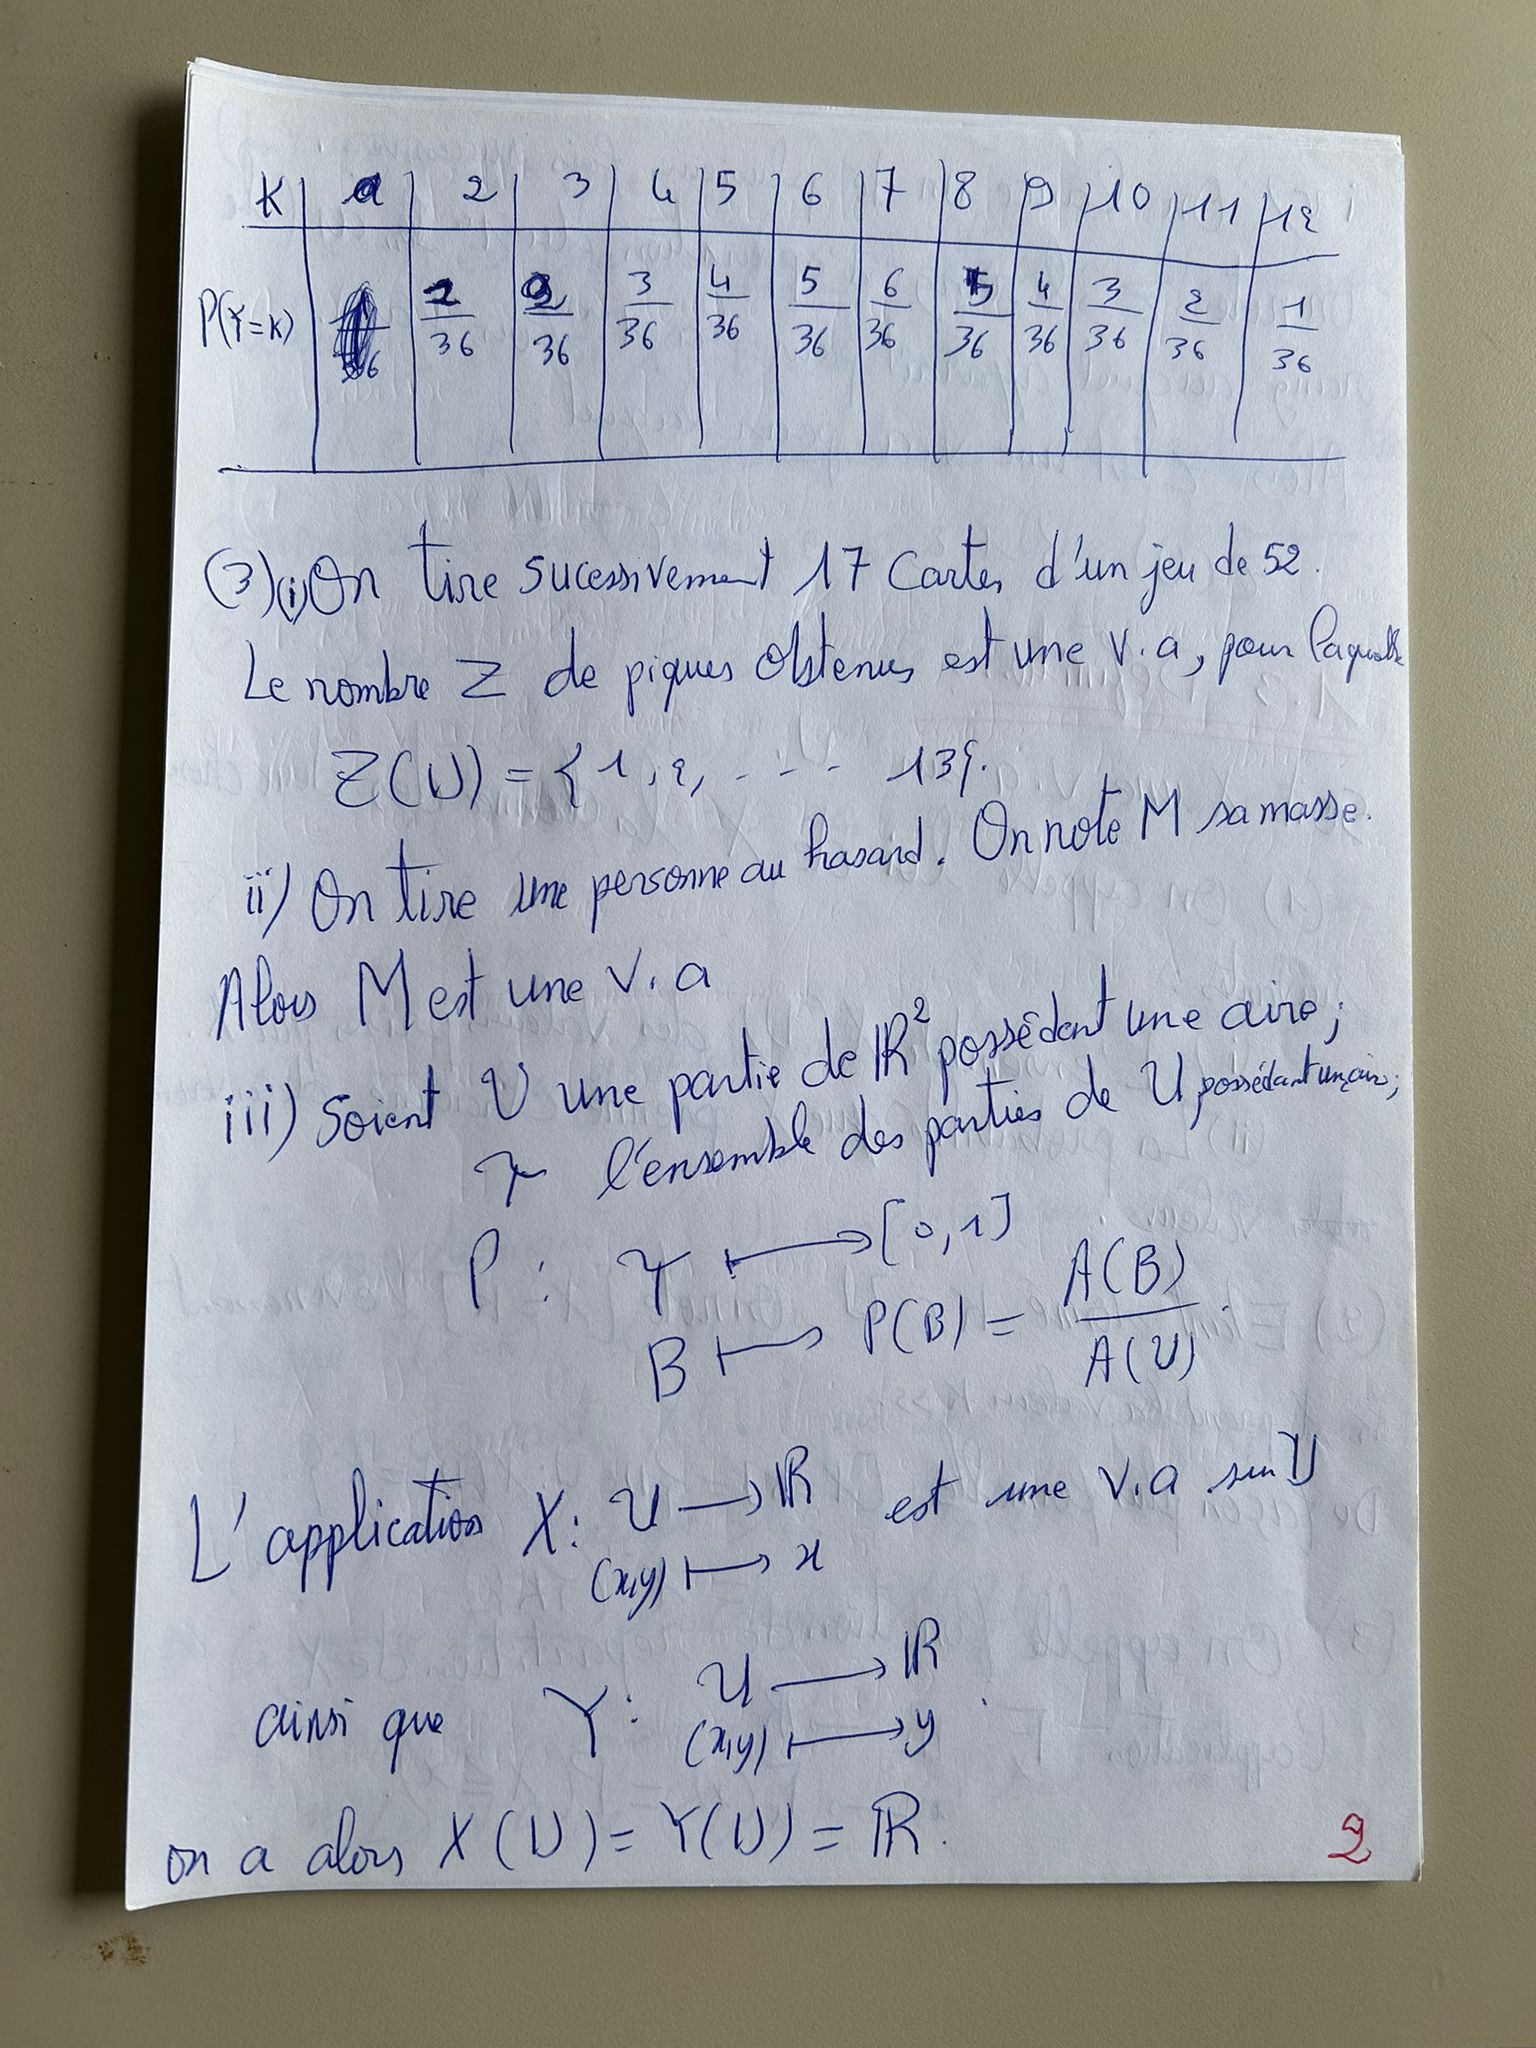 K | 2 | 3 | 4 | 5 | 6 | 7 | 8 | 9 | 10 | 11 | 12
P(Y=K) | 1/36 | 2/36 | 3/36 | 4/36 | 5/36 | 6/36 | 5/36 | 4/36 | 3/36 | 2/36 | 1/36
(3)(i) On tire sucessivement 17 Cartes d'un jeu de 52.
Le nombre Z de piques Obtenus est une v.a, pour laquelle
Z(U) = {1, 2, - - - 13}.
ii) On tire une personne au hasard. On note M sa masse.
Alors M est une v.a
iii) Soient U une partie de ℝ² possédant une aire;
l'ensemble des parties de U possédant un aire;
P : ⟼ [0,1]
B ⟼ P(B) = A(B)/A(U).
L'application X: U ⟶ ℝ est une v.a sur U
(x,y) ⟼ x
ainsi que Y: U ⟶ ℝ
(x,y) ⟼ y.
on a alors X(U) = Y(U) = ℝ.
2